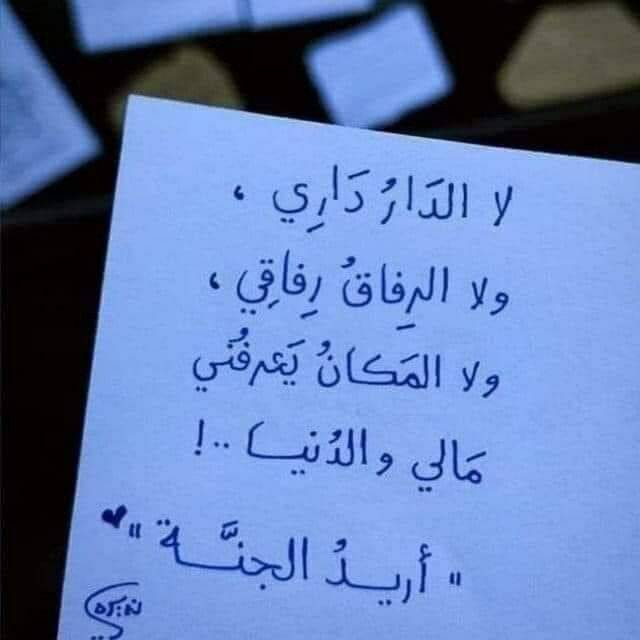 لا الدَارُ دَارِي ،
ولا الرِفاقُ رِفاقِي ،
ولا المَكانُ يَعرفُني
مَالي والدُنيــا ..!
" أريــدُ الجنَّــة "